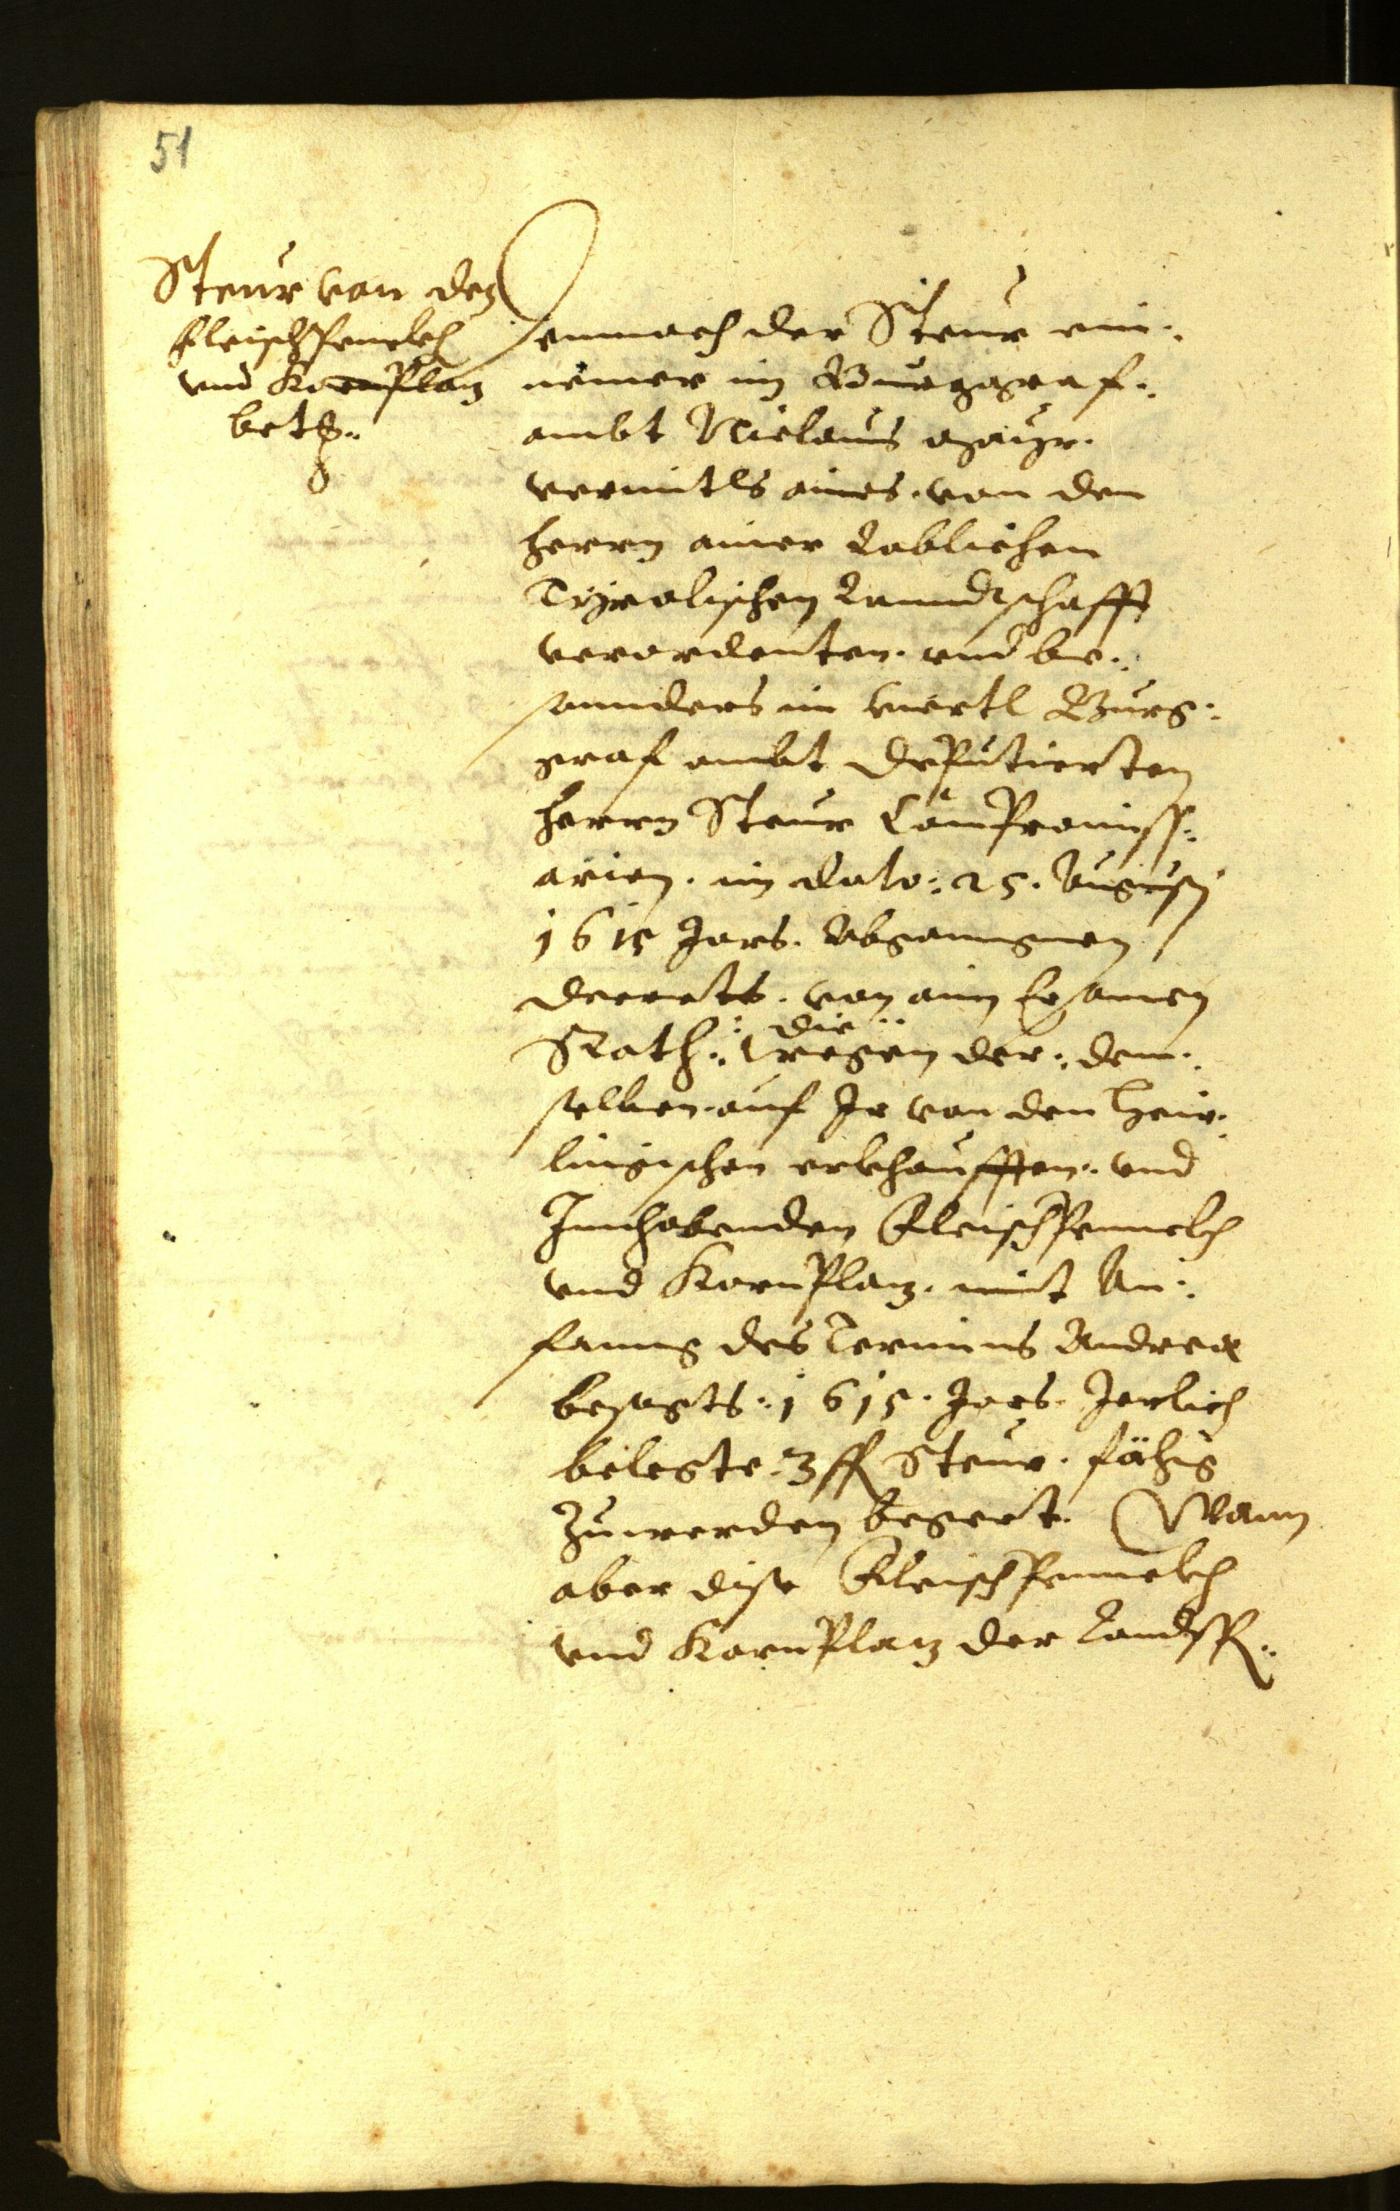 51
Steur von den
Fleischpenckh
vnd Kornplaz
betr:
Demnach der Steur ein-
nemer im Burggraf-
ambt Niclaus Mayr
vermitls aines von den
herrn ainer Loblichen
Tyrolischen Lanndtschafft
verordenten vnd be-
sonnders im viertl Burg-
graf ambt deputierten
herrn Steur Compromiss-
arien im dato: 25. Augusti
1615 Jars. Abganngnen
decrets. von aim Ersamen
Rath: die
wegen der: dem-
selben auf Ir von den
lingischen erkhaufften vnd
Innhabenden Fleischpennckh
vnd Kornplaz. mit An-
fanng des Termins Andreæ
besagts: 1615. Jars. Jerlich
belegte: 3 fl Steur. fähig
zuwerden begert. Wann
aber dise Fleischpennckh
vnd Kornplaz der Landtsf: